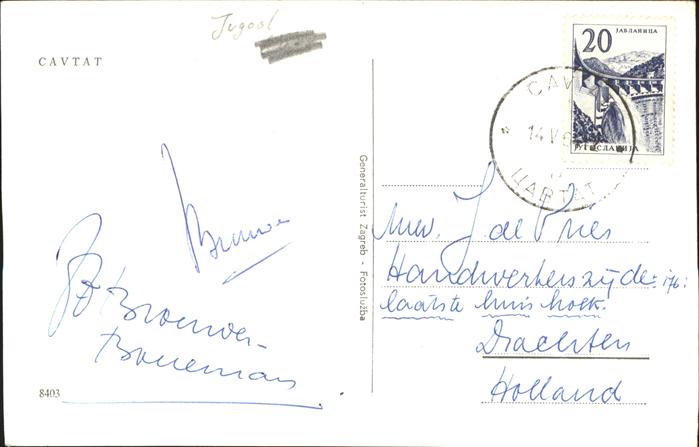 Jugosl
CAVTAT
20
ЈАБЛАНИЦА
ЈУГОСЛАВИЈА
CAVTAT
14 V 6
ЦАВТАТ
Generalturist Zagreb - Fotoslužba
Brouwer
Brouwer-
Mw. J de Vries
Handwerkerszijde 176
laatste huis hoek.
Drachten
Holland
8403